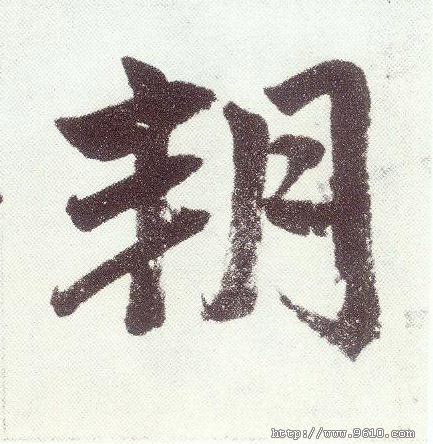 朔
http://www.9610.com